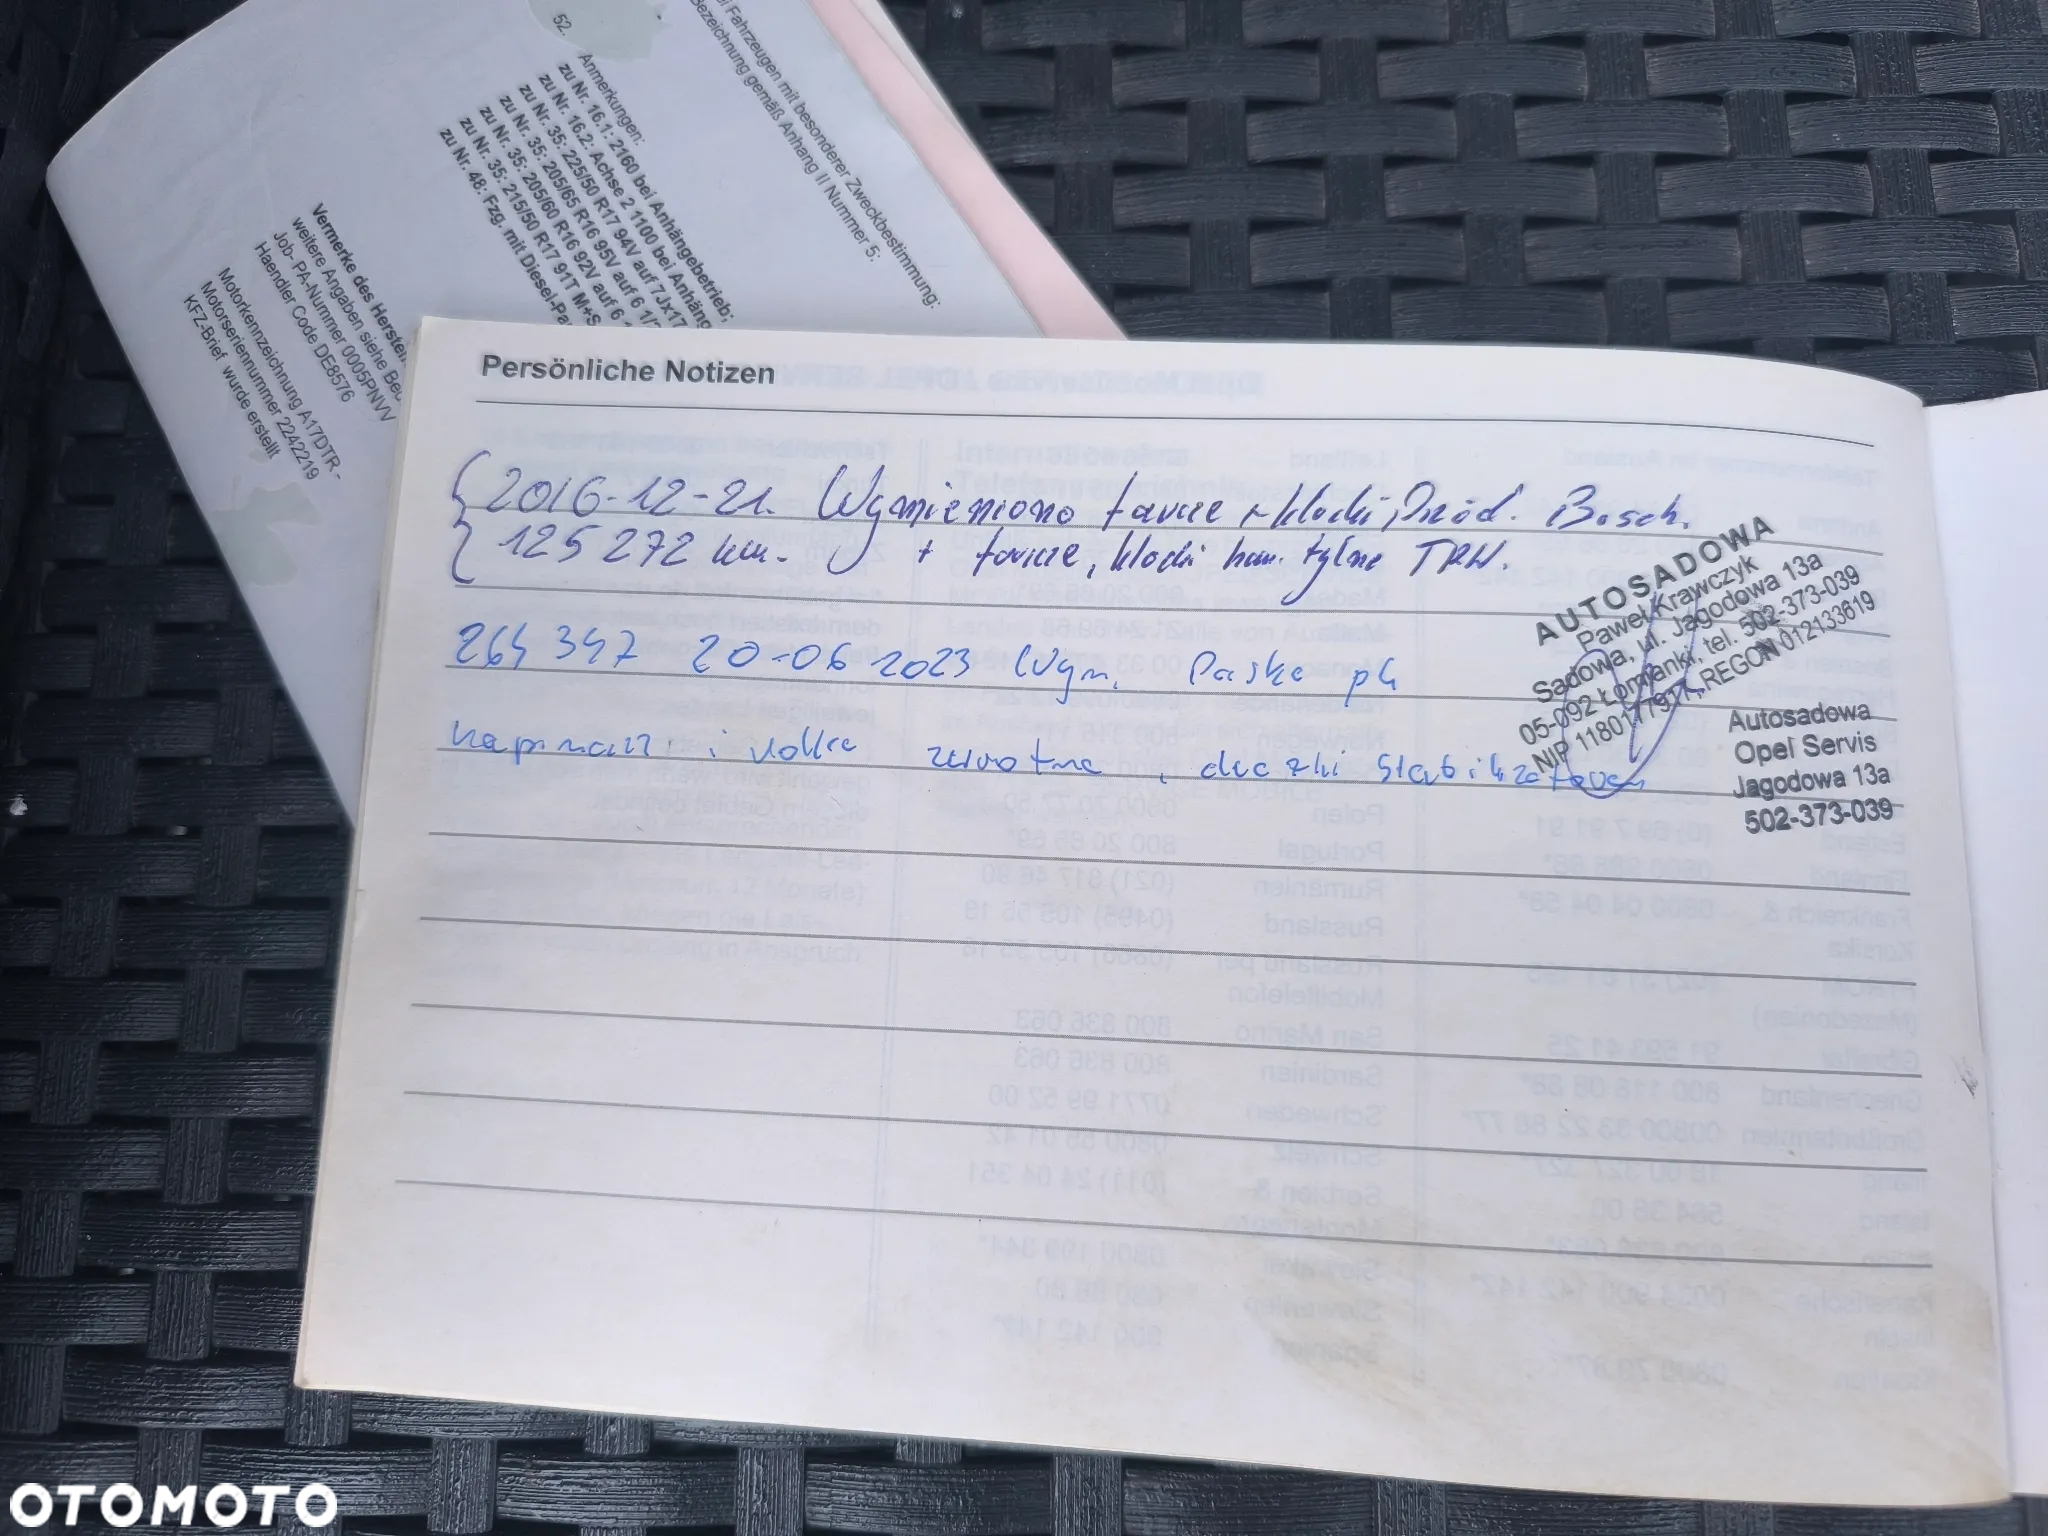 52.
ei Fahrzeugen mit besonderer Zweckbestimmung:
Bezeichnung gemäß Anhang II Nummer 5:
Anmerkungen:
zu Nr. 16.1: 2160 bei Anhängebetrieb;
zu Nr. 16.2: Achse 2 1100 bei Anhäng
zu Nr. 35: 225/50 R17 94V auf 7Jx17
zu Nr. 35: 205/65 R16 95V auf 6 1/
zu Nr. 35: 205/60 R16 92V auf 6
zu Nr. 35: 215/50 R17 91T M+S
zu Nr. 48: Fzg. mit Diesel-Pa
Vermerke des Herstell
weitere Angaben siehe Bed
Job- PA-Nummer 0005PNVV
Haendler Code DE8576
Motorkennzeichnung A17DTR-
Motorseriennummer 2242219
KFZ-Brief wurde erstellt
Persönliche Notizen
2016-12-21. Wymieniono tarcze + klocki, Prod. Bosch.
125 272 km. + tarcze, klocki ham. tylne TRW.
264 347 20-06 2023 Wym. Paska pk
napinacz i rolka zwrotna, drazki stabilizatora
AUTOSADOWA
Paweł Krawczyk
Sadowa, ul. Jagodowa 13a
05-092 Łomianki, tel. 502-373-039
REGON 012133619
Autosadowa
Opel Servis
Jagodowa 13a
502-373-039
OTOMOTO